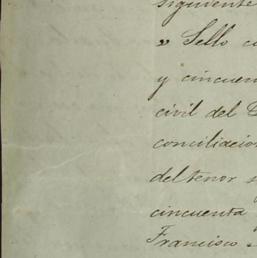 siguiente
" Sello
y cincuen
civil del
conciliacion
del tenor
cincuenta
Francisco